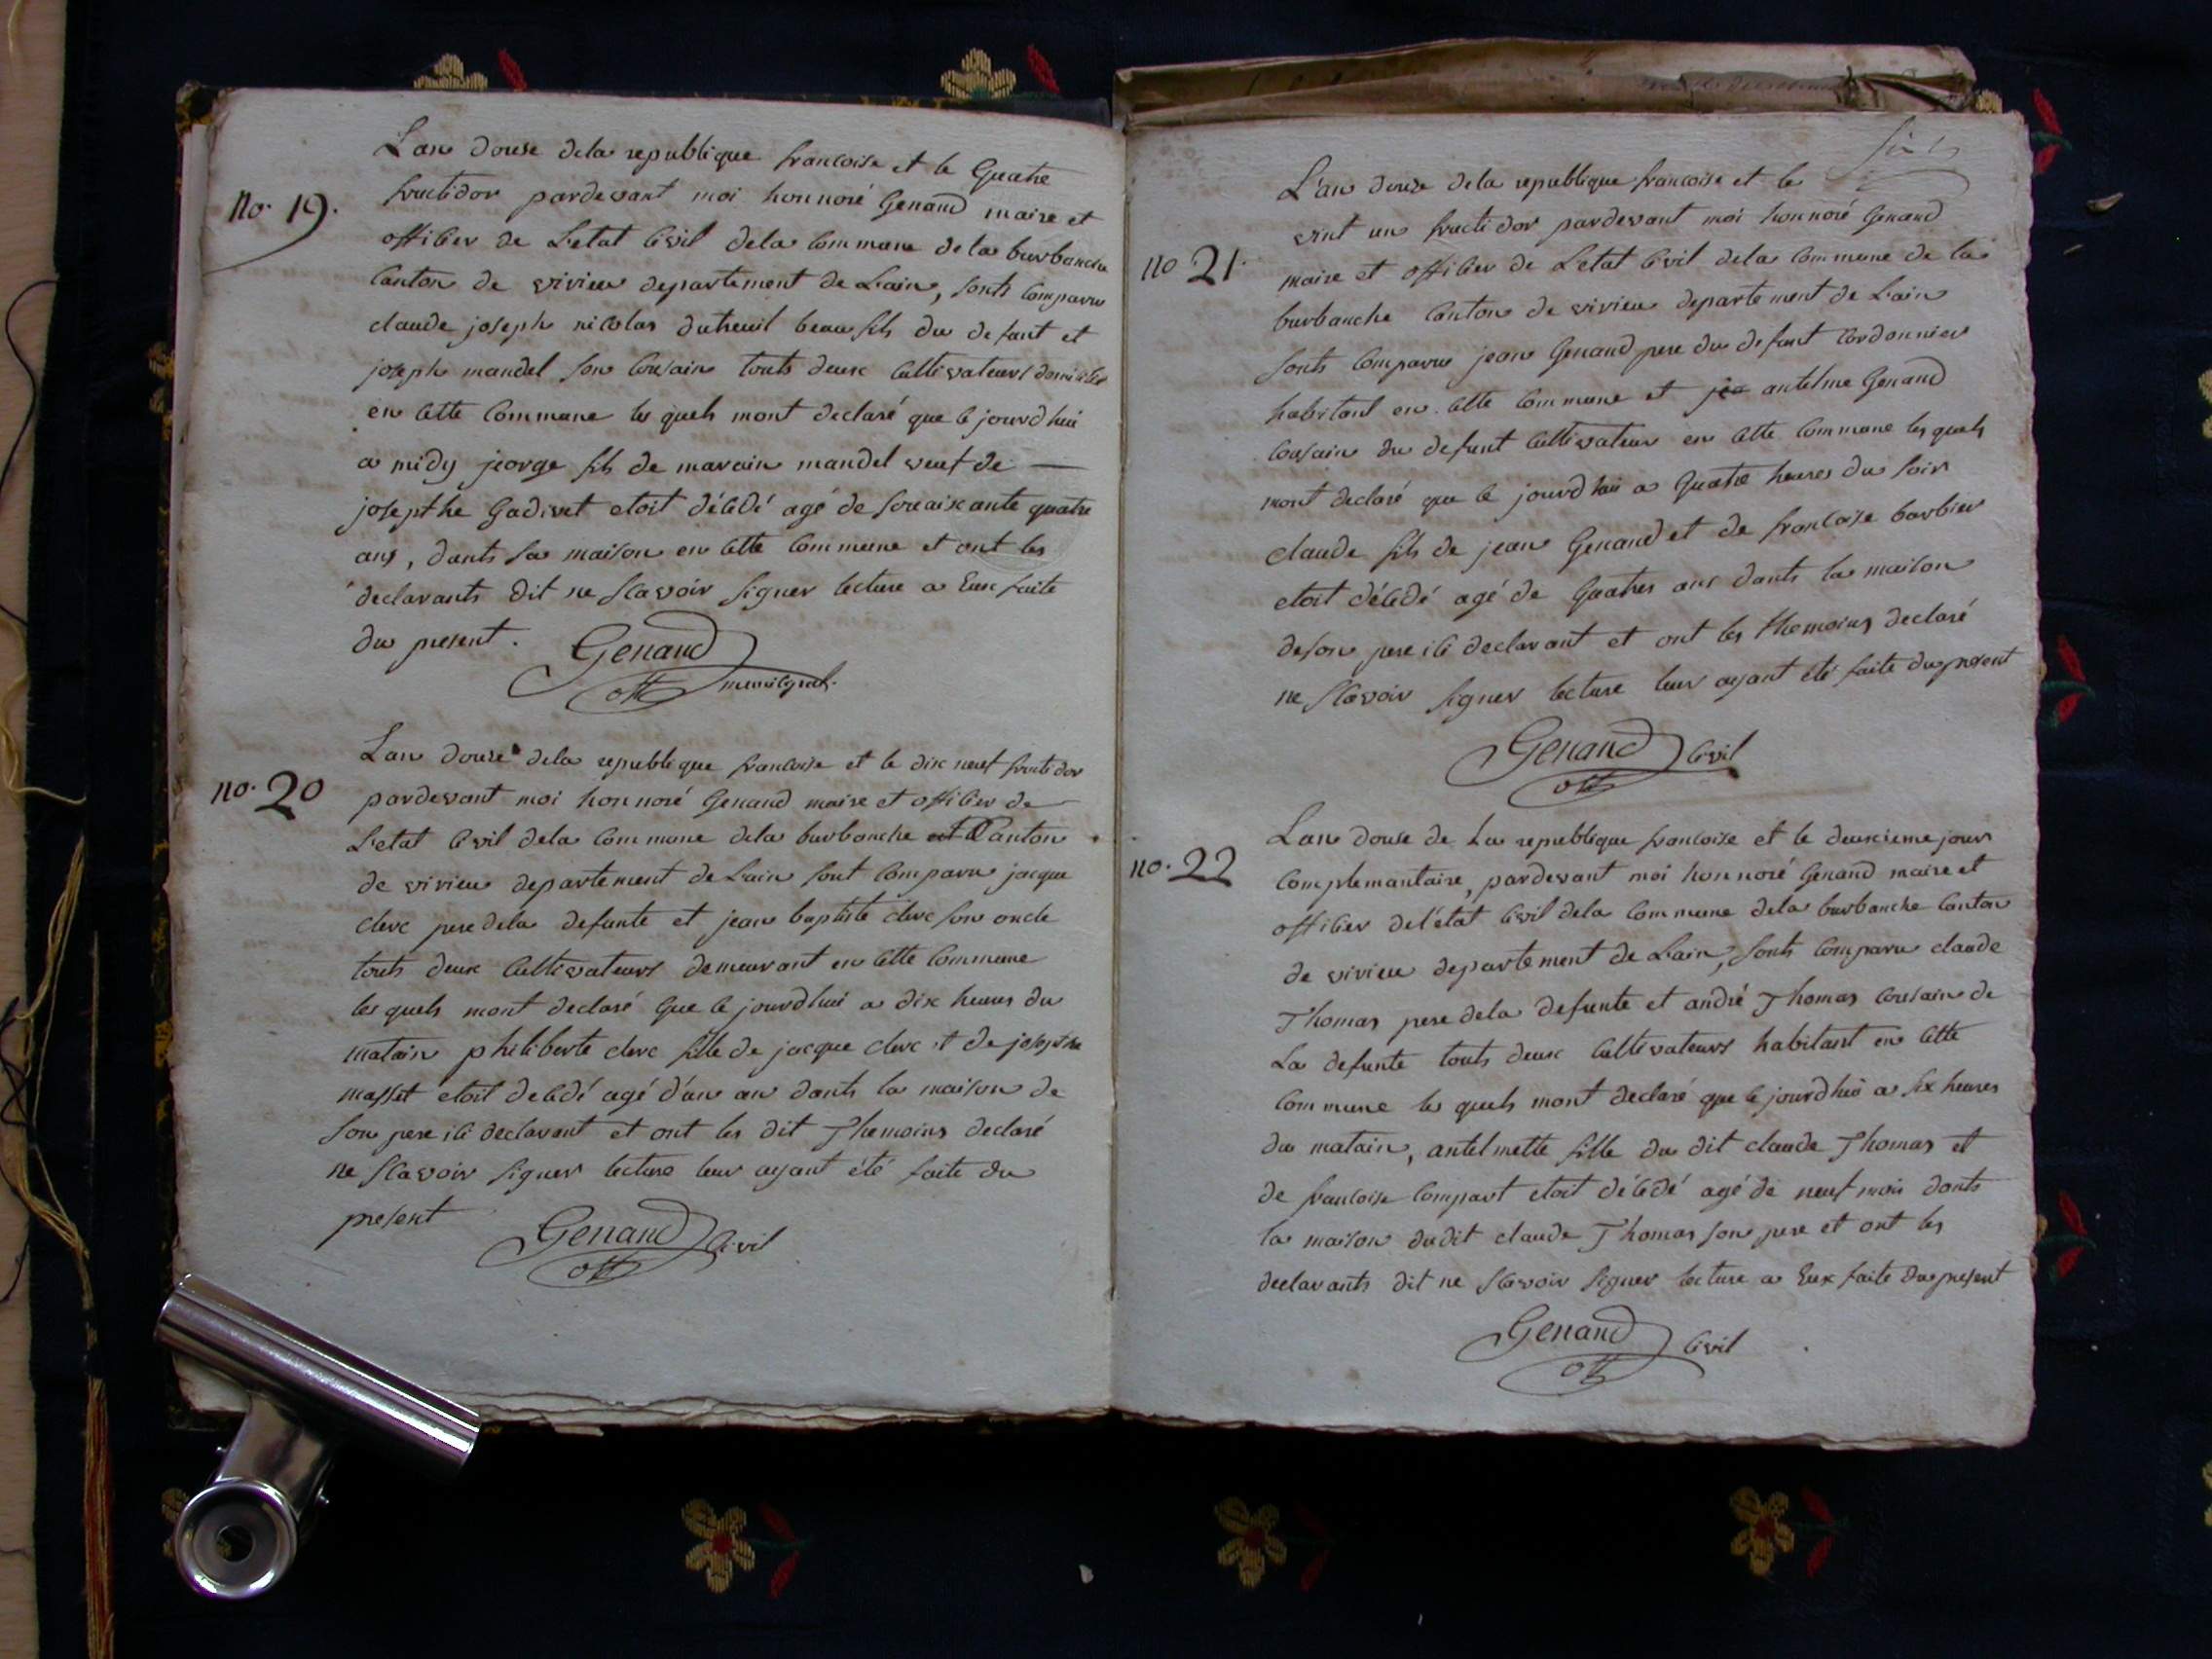 Lan douse dela republique francoise et le Quatre
no. 19. fructidor pardevant moi honnoré Genand maire et
officier de Letat Civil dela Commune de la burbanche
Canton de virieu departement de L'ain, sonts Comparu
claude joseph nicolas dutreuil beau fils du defunt et
joseph mandel son Cousain touts deux Cultivateurs domicilies
en Cette Commune les quels mont declaré que ce jourd'hui
a midy jeorge fils de marain mandel veuf de —
josepthe Gadivet etoit décédé agé de soixaixante quatre
ans, dants sa maison en Cette Commune et ont les
declarants dit ne scavoir signer lecture a Eux faite
du present. Genand
off municipal.
Lan douse dela republique francoise et le dix neuf fructidor
no. 20 pardevant moi honnoré Genand maire et officier de
Letat Civil dela Commune dela burbanche et Canton
de virieu departement de L'ain sont Comparu jacque
clerc pere dela defunte et jean baptiste clerc son oncle
touts deux Cultivateurs demeurant en Cette Commune
les quels mont declaré que ce jourdhui a dix heures du
matain philiberte clerc fille de jacque clerc et de josepthe
masset etoit decedé agé d'un an dants la maison de
son pere ici declarant et ont les dit Themoins declaré
ne scavoir signer lecture leur ayant été faite du
present
Genand Civil
off
L'an douse dela republique francoise et le
vint un fructidor pardevant moi honnoré Genand
no 21. maire et officier de Letat Civil dela Commune de la
burbanche Canton de virieu departement de L'ain
sonts Comparu jean Genand pere du defunt Cordonnier
habitant en Cette Commune et jea antelme Genand
Cousain du defunt Cultivateur en Cette Commune les quels
mont declaré que ce jourd'hui a Quatre heures du soir
claude fils de jean Genand et de francoise barbier
etoit décédé agé de Quatres ans dants la maison
deson pere ici declarant et ont les themoins declaré
ne scavoir signer lecture leur ayant été faite du present
Genand Civil
off
Lan douse de La republique francoise et le deuxieme jour
no. 22 Complemantaire, pardevant moi honnoré Genand maire et
officier del'état Civil dela Commune dela burbanche Canton
de virieu departement de L'ain, sonts Comparu claude
Thomas pere dela defunte et andré Thomas Cousain de
La defunte touts deux Cultivateurs habitant en Cette
Commune les quels mont declaré que ce jourd'hui a six heures
du matain, antelmette fille du dit claude Thomas et
de francoise Compart etoit décédé agé de neuf mois dants
la maison dudit claude Thomas son pere et ont les
declarants dit ne scavoir signer lecture a Eux faite du present
Genand Civil
off